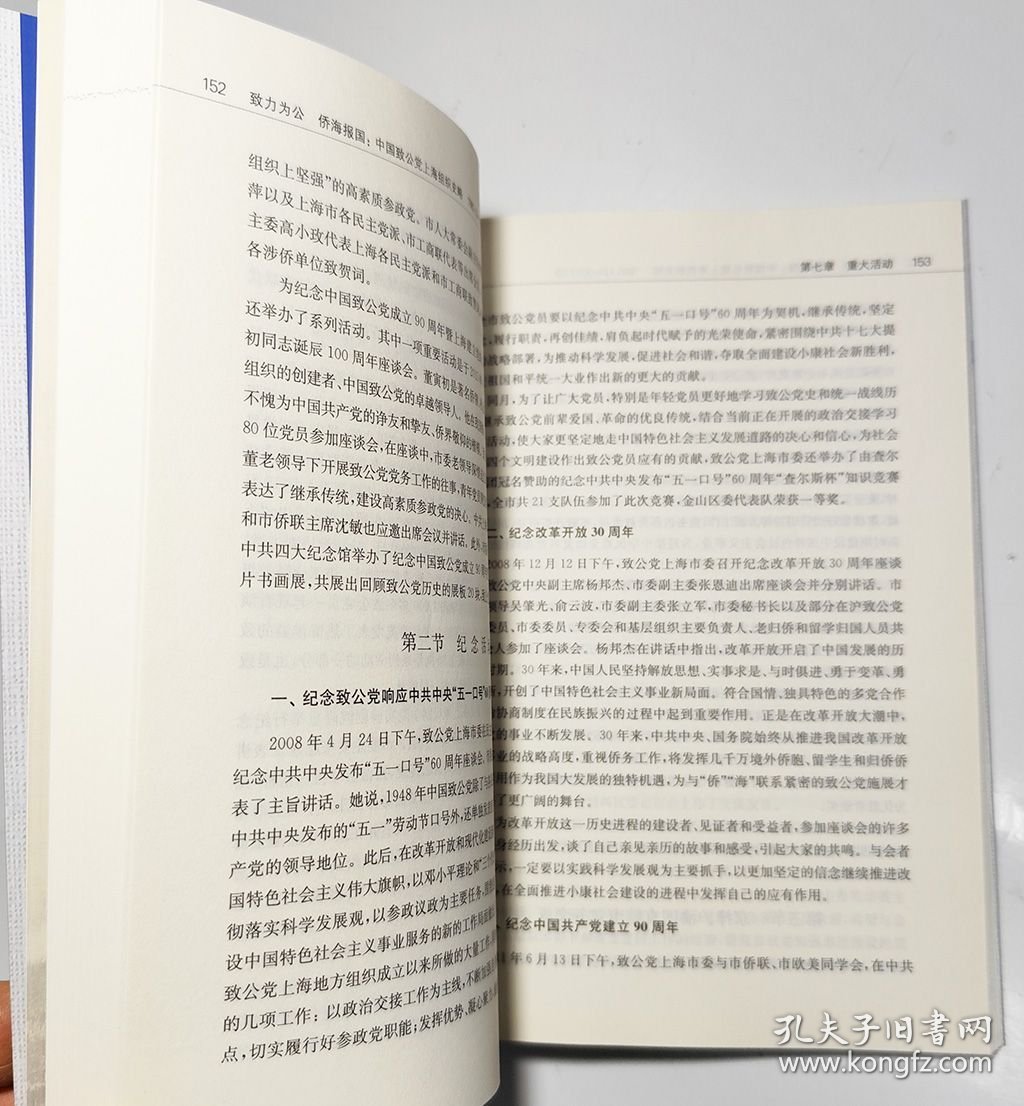 152 致力为公 侨海报国：中国致公党上海组织史略
组织上坚强”的高素质参政党。市人大常委会
萍以及上海市各民主党派、市工商联代表等出席
主委高小玫代表上海各民主党派和市工商联致
各涉侨单位致贺词。
为纪念中国致公党成立90周年暨上海建立
还举办了系列活动。其中一项重要活动是于
初同志诞辰100周年座谈会。董寅初是著名侨
组织的创建者、中国致公党的卓越领导人。他在
不愧为中国共产党的诤友和挚友、侨界敬仰的楷模。
80位党员参加座谈会，在座谈中，市委老领导
董老领导下开展致公党党务工作的往事，青年党员
表达了继承传统，建设高素质参政党的决心。中共
和市侨联主席沈敏也应邀出席会议并讲话。此外，
中共四大纪念馆举办了纪念中国致公党成立90周
片书画展，共展出回顾致公党历史的展板20块，
第二节 纪念活
一、纪念致公党响应中共中央“五一口号”
2008年4月24日下午，致公党上海市委
纪念中共中央发布“五一口号”60周年座谈会，
表了主旨讲话。她说，1948年中国致公党除了
中共中央发布的“五一”劳动节口号外，还单独发
产党的领导地位。此后，在改革开放和现代化建
国特色社会主义伟大旗帜，以邓小平理论和“三个
彻落实科学发展观，以参政议政为主要任务，
设中国特色社会主义事业服务的新的工作局面
致公党上海地方组织成立以来所做的大量工作，
的几项工作：以政治交接工作为主线，不断加强
点，切实履行好参政党职能；发挥优势、凝心聚力，
第七章 重大活动 153
市致公党员要以纪念中共中央“五一口号”60周年为契机，继承传统，坚定
，履行职责，再创佳绩，肩负起时代赋予的光荣使命，紧密围绕中共十七大提
战略部署，为推动科学发展，促进社会和谐，夺取全面建设小康社会新胜利，
祖国和平统一大业作出新的更大的贡献。
同月，为了让广大党员，特别是年轻党员更好地学习致公党史和统一战线历
继承致公党前辈爱国、革命的优良传统，结合当前正在开展的政治交接学习
活动，使大家更坚定地走中国特色社会主义发展道路的决心和信心，为社会
四个文明建设作出致公党员应有的贡献，致公党上海市委还举办了由查尔
冠名赞助的纪念中共中央发布“五一口号”60周年“查尔斯杯”知识竞赛
，全市共21支队伍参加了此次竞赛，金山区委代表队荣获一等奖。
二、纪念改革开放30周年
2008年12月12日下午，致公党上海市委召开纪念改革开放30周年座谈
致公党中央副主席杨邦杰、市委副主委张恩迪出席座谈会并分别讲话。市
领导吴肇光、俞云波，市委副主委张立军，市委秘书长以及部分在沪致公党
委员、市委委员、专委会和基层组织主要负责人、老归侨和留学归国人员共
人参加了座谈会。杨邦杰在讲话中指出，改革开放开启了中国发展的历
时期。30年来，中国人民坚持解放思想、实事求是、与时俱进、勇于变革、勇
，开创了中国特色社会主义事业新局面。符合国情、独具特色的多党合作
协商制度在民族振兴的过程中起到重要作用。正是在改革开放大潮中，
的事业不断发展。30年来，中共中央、国务院始终从推进我国改革开放
业的战略高度，重视侨务工作，将发挥几千万境外侨胞、留学生和归侨侨
用作为我国大发展的独特机遇，为与“侨”“海”联系紧密的致公党施展才
了更广阔的舞台。
为改革开放这一历史进程的建设者、见证者和受益者，参加座谈会的许多
身经历出发，谈了自己亲见亲历的故事和感受，引起大家的共鸣。与会者
示，一定要以实践科学发展观为主要抓手，以更加坚定的信念继续推进改
，在全面推进小康社会建设的进程中发挥自己的应有作用。
、纪念中国共产党建立90周年
年6月13日下午，致公党上海市委与市侨联、市欧美同学会，在中共
孔夫子旧书网
www.kongfz.com